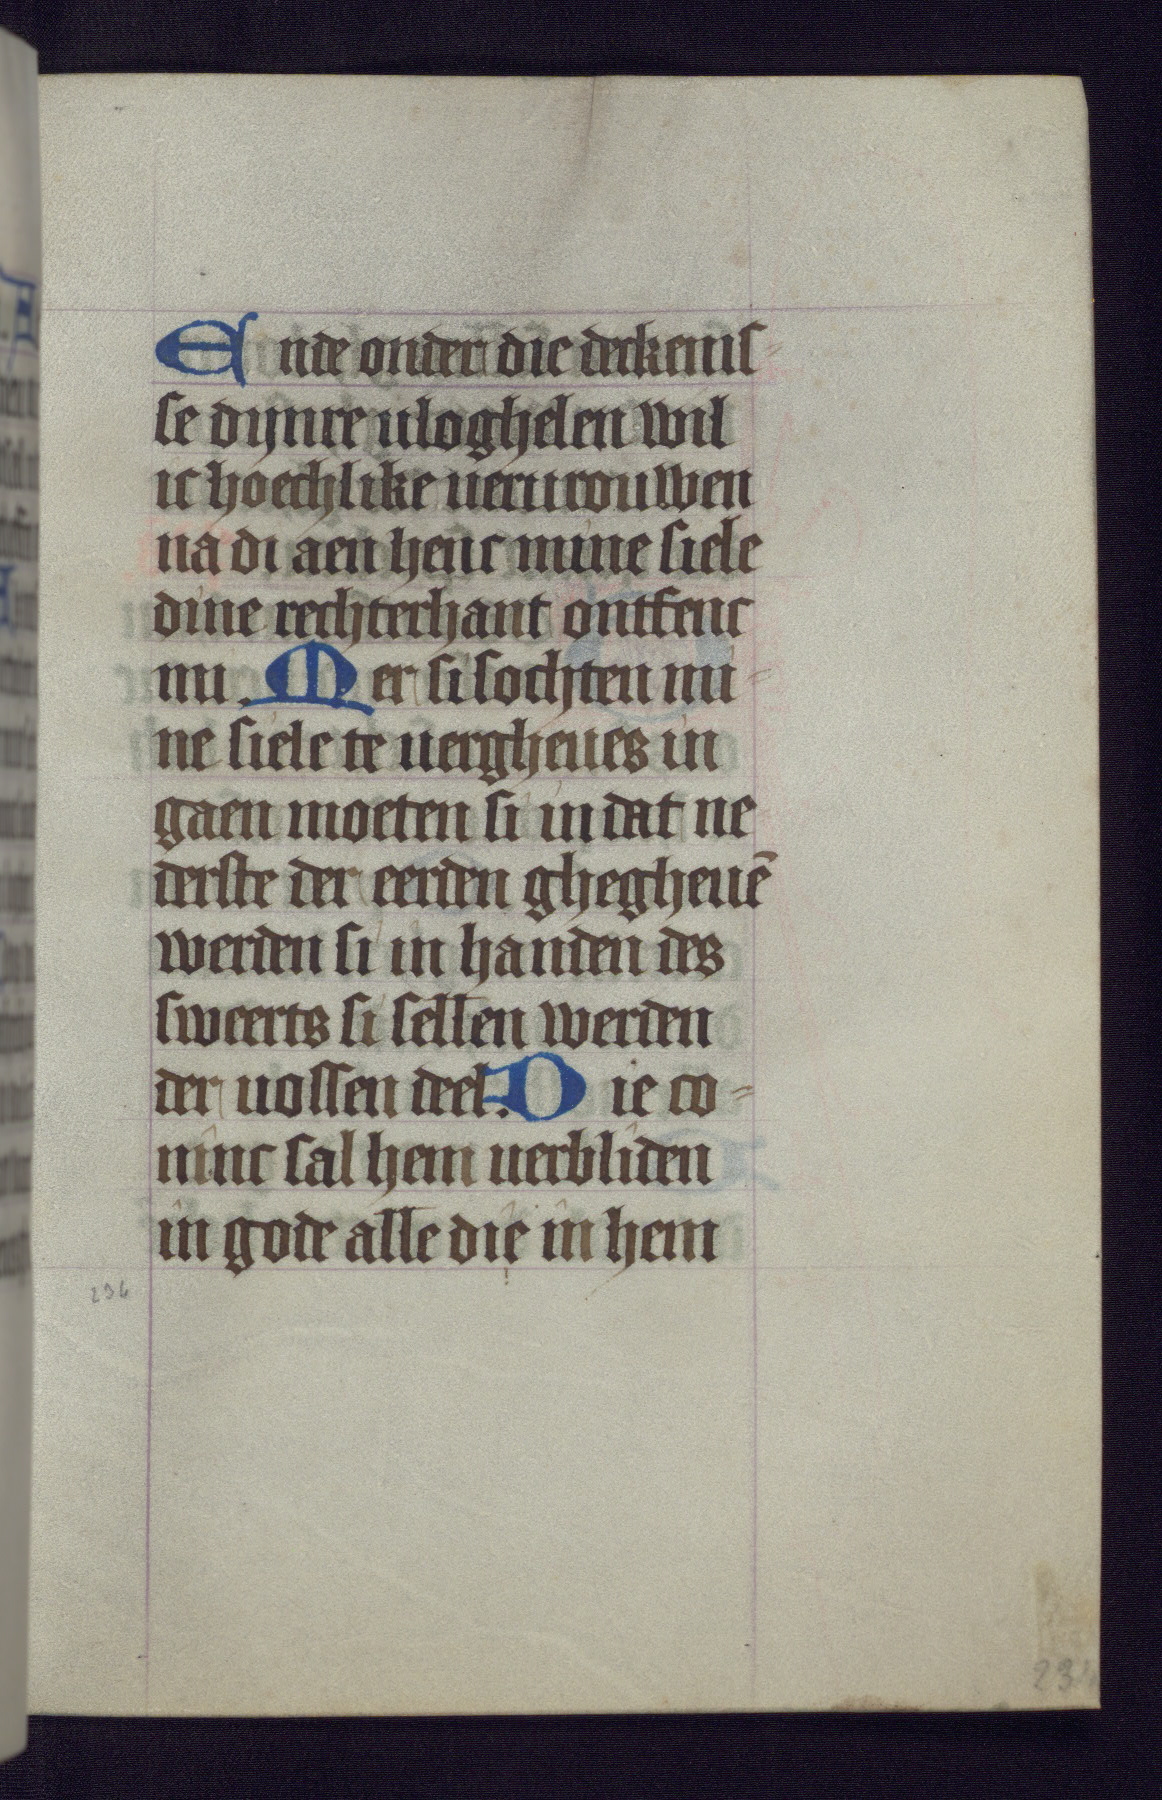 Ende onder die deckenis-
se dijnre vloghelen wil
ic hoechlike vertrouwen
na di aen henc mine siele
dine rechterhant ontfenc
mi. Mer si sochten mi-
ne siele te vergheues in
gaen moeten si in dat ne
derste der eerden ghegheuē
werden si in handen des
sweerts si sellen werden
der vossen deel. Die co-
ninc sal hem verbliden
in gode alle die in hem
234